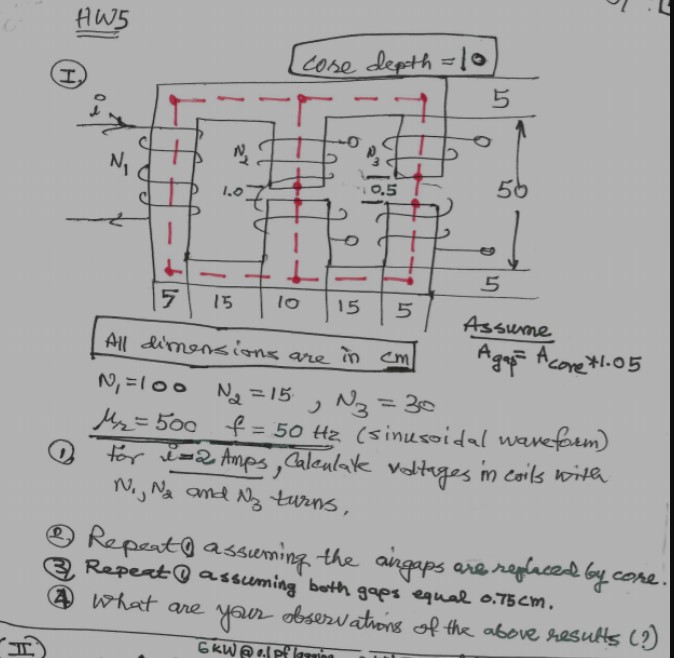 HW5
core depth = 10
I.
i
5
N1
N2
N3
1.0
0.5
50
5
5 15 10 15 5
Assume
Agap = Acore*1.05
All dimensions are in cm
N1=100 N2=15, N3=30
μr=500 f=50 Hz (sinusoidal waveform)
① for i=2 Amps, Calculate voltages in coils with
N1, N2 and N3 turns.
② Repeat ① assuming the airgaps are replaced by core.
③ Repeat ① assuming both gaps equal 0.75cm.
④ What are your observations of the above results (?)
II
6KW@0.1pf lagging